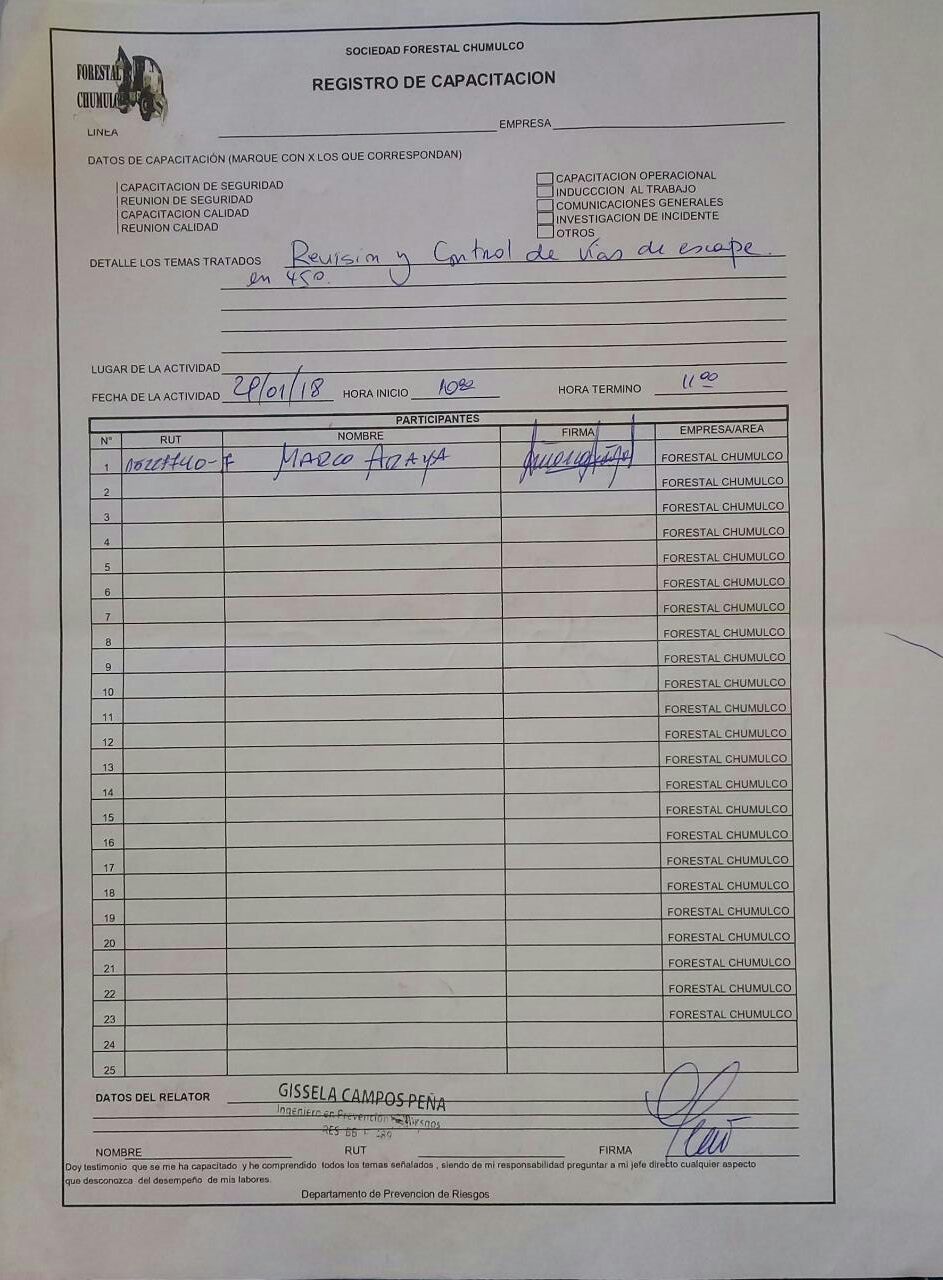 FORESTAL
CHUMULCO
SOCIEDAD FORESTAL CHUMULCO
REGISTRO DE CAPACITACION
LINEA EMPRESA
DATOS DE CAPACITACIÓN (MARQUE CON X LOS QUE CORRESPONDAN)
CAPACITACION DE SEGURIDAD CAPACITACION OPERACIONAL
REUNION DE SEGURIDAD INDUCCCION AL TRABAJO
CAPACITACION CALIDAD COMUNICACIONES GENERALES
REUNION CALIDAD INVESTIGACION DE INCIDENTE
OTROS
DETALLE LOS TEMAS TRATADOS Revision y Control de vías de escape.
en 450.
LUGAR DE LA ACTIVIDAD
FECHA DE LA ACTIVIDAD /01/18 HORA INICIO 10 HORA TERMINO 11 00
PARTICIPANTES
N° RUT NOMBRE FIRMA EMPRESA/AREA
1 MARCO ARAYA FORESTAL CHUMULCO
2 FORESTAL CHUMULCO
3 FORESTAL CHUMULCO
4 FORESTAL CHUMULCO
5 FORESTAL CHUMULCO
6 FORESTAL CHUMULCO
7 FORESTAL CHUMULCO
8 FORESTAL CHUMULCO
9 FORESTAL CHUMULCO
10 FORESTAL CHUMULCO
11 FORESTAL CHUMULCO
12 FORESTAL CHUMULCO
13 FORESTAL CHUMULCO
14 FORESTAL CHUMULCO
15 FORESTAL CHUMULCO
16 FORESTAL CHUMULCO
17 FORESTAL CHUMULCO
18 FORESTAL CHUMULCO
19 FORESTAL CHUMULCO
20 FORESTAL CHUMULCO
21 FORESTAL CHUMULCO
22 FORESTAL CHUMULCO
23 FORESTAL CHUMULCO
24
25
DATOS DEL RELATOR GISSELA CAMPOS PEÑA
Ingeniero en Prevención Riesgos
NOMBRE RUT FIRMA
Doy testimonio que se me ha capacitado y he comprendido todos los temas señalados , siendo de mi responsabilidad preguntar a mi jefe directo cualquier aspecto
que desconozca del desempeño de mis labores.
Departamento de Prevencion de Riesgos